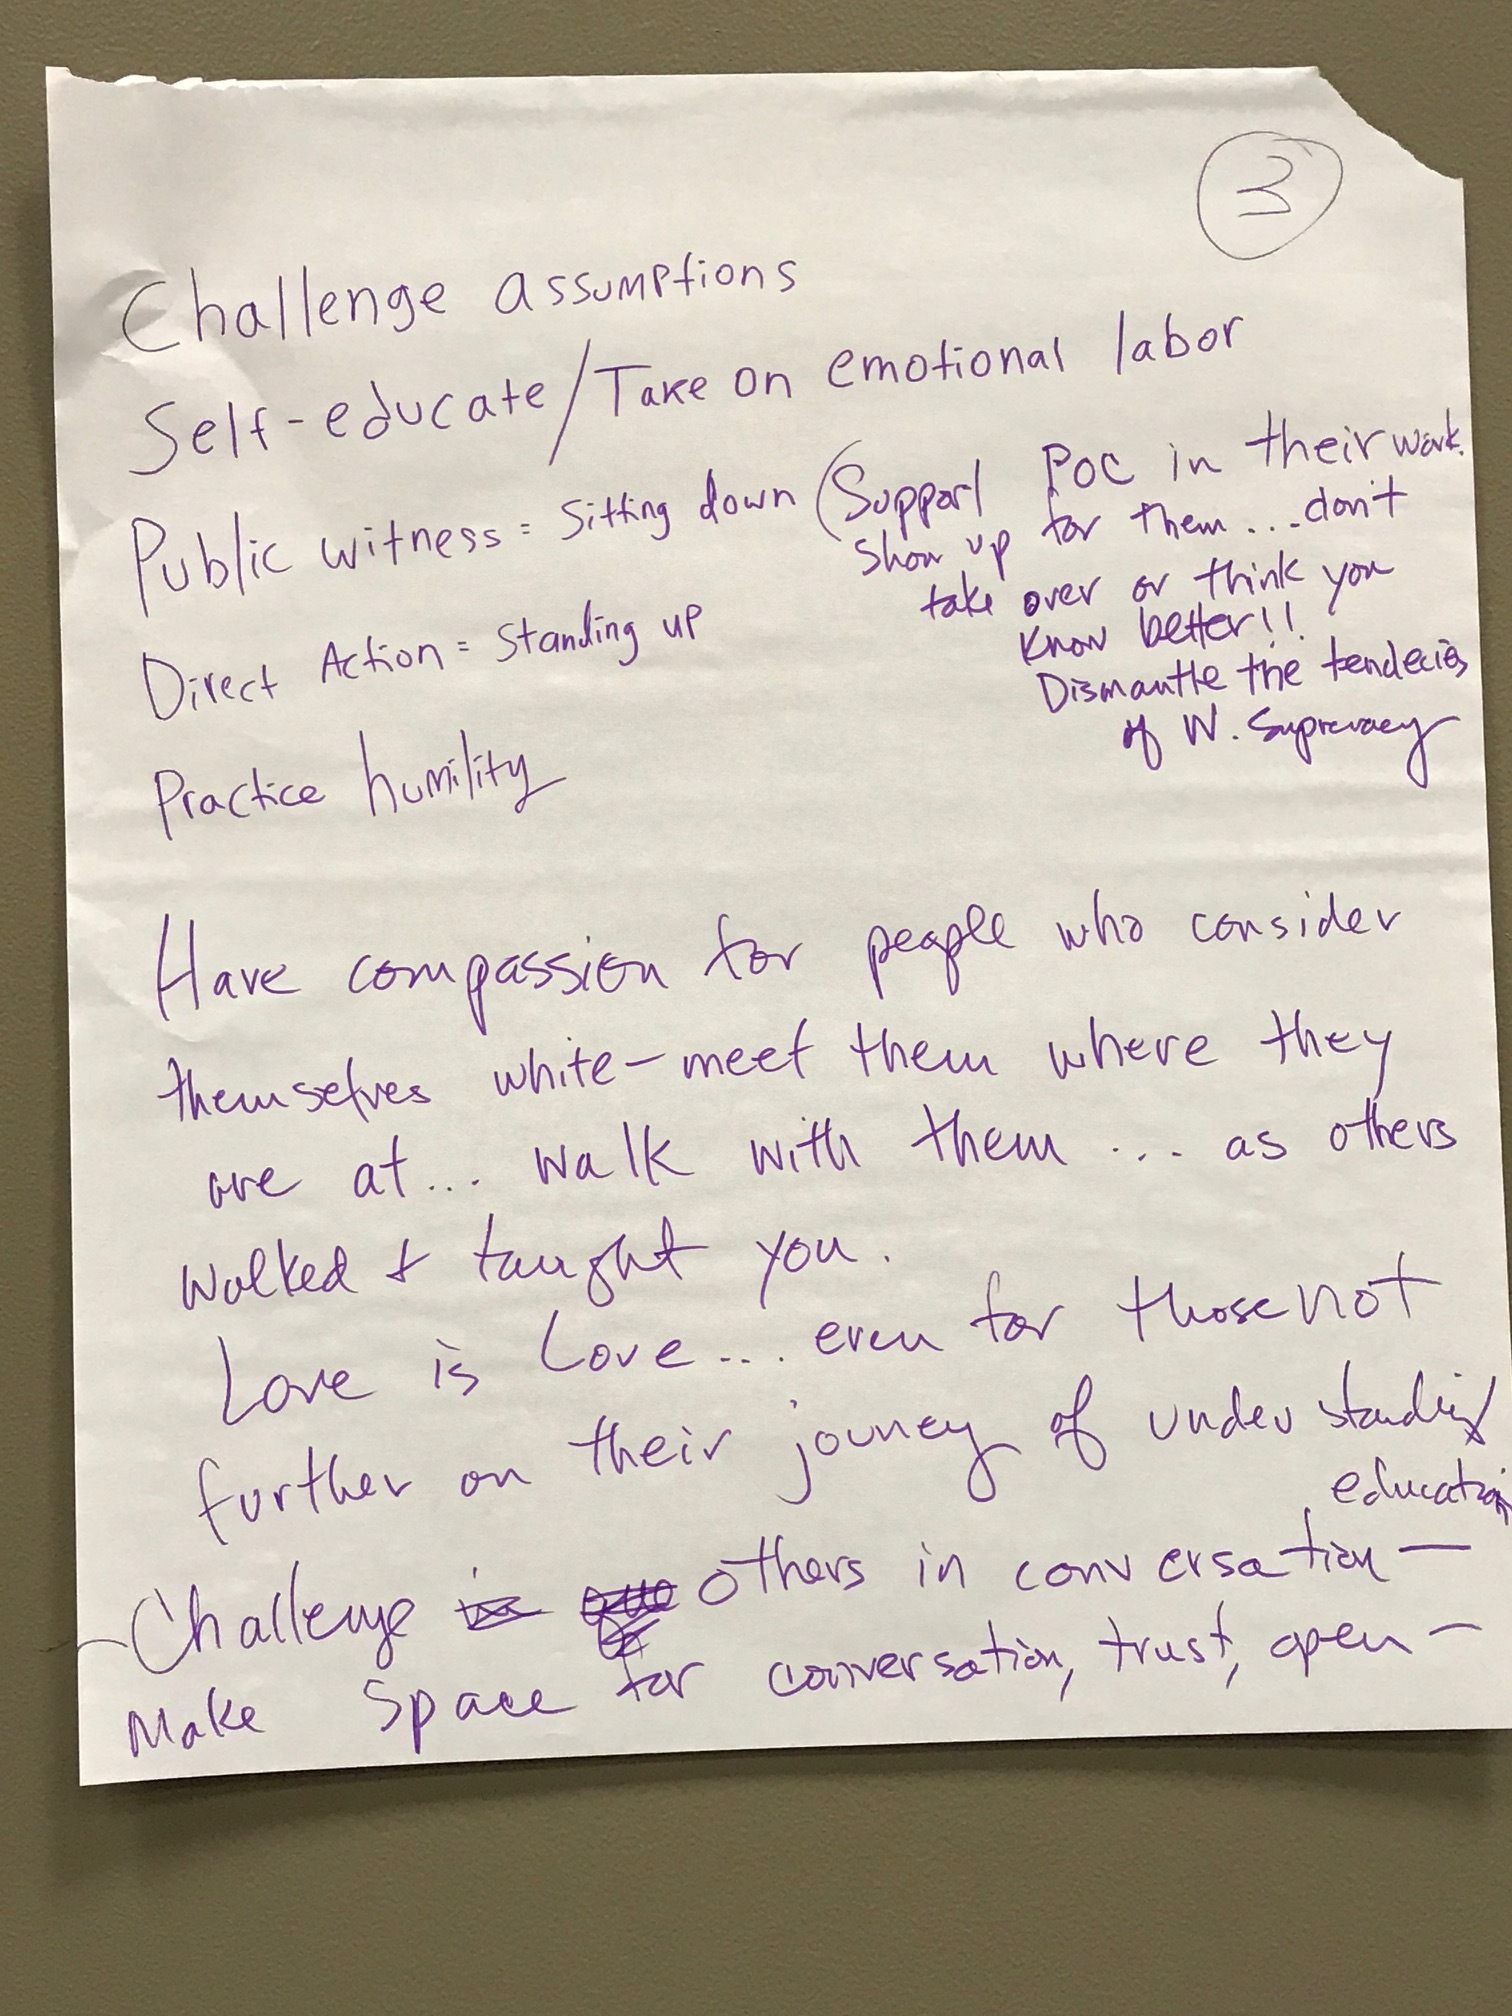 3
Challenge assumptions
Self-educate/Take on emotional labor
Public witness = Sitting down (Support POC in their work.
Show up for them...don't
take over or think you
know better!!
Dismantle the tendecies
of W. Supremacy
Direct Action = Standing up
Practice humility
Have compassion for people who consider
themselves white - meet them where they
are at... walk with them... as others
walked & taught you.
Love is Love... even for those not
further on their journey of understanding
education
- Challenge others in conversation -
Make Space for conversation, trust, open -